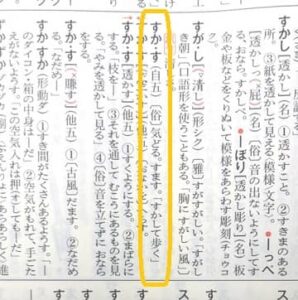 すかし[透かし](名)①透かすこと。②すきまのある
所。③紙を透かして見える模様・文字。●―っぺ
[透かしっ屁](名)〔俗〕音の出ないようにしてす
る、おなら。すかしぺ。●―ぼり[透かし彫り](名)板
金や板などをくりぬいて模様をあらわす彫刻〔チョウコ
すが・し[〈清〉し](形シク)〔雅〕すがすがしい。「すがし
き朝」〔口語形を使うこともある。「胸にすがしい風」〕
すか・す(自五)〔俗〕気どる。すます。「すかして歩く」
すか・す
すか・す[透かす](他五)①すくようにする。②まばらに
する。「枝を―」③それを通して むこうにあるものを見
る。「やみを透かして見る」④〔俗〕音を立てずに おなら
をする。
すか・す[〈賺す〉](他五)①〔古風〕だます。②なだめ
る。「なだめ
すかすか(形動ダ)①すき間がたくさんあるようす。「―
のダイコン・箱の中は―だ」②空気がもれて、手ごた
えがないようす。
ずかずか(副)